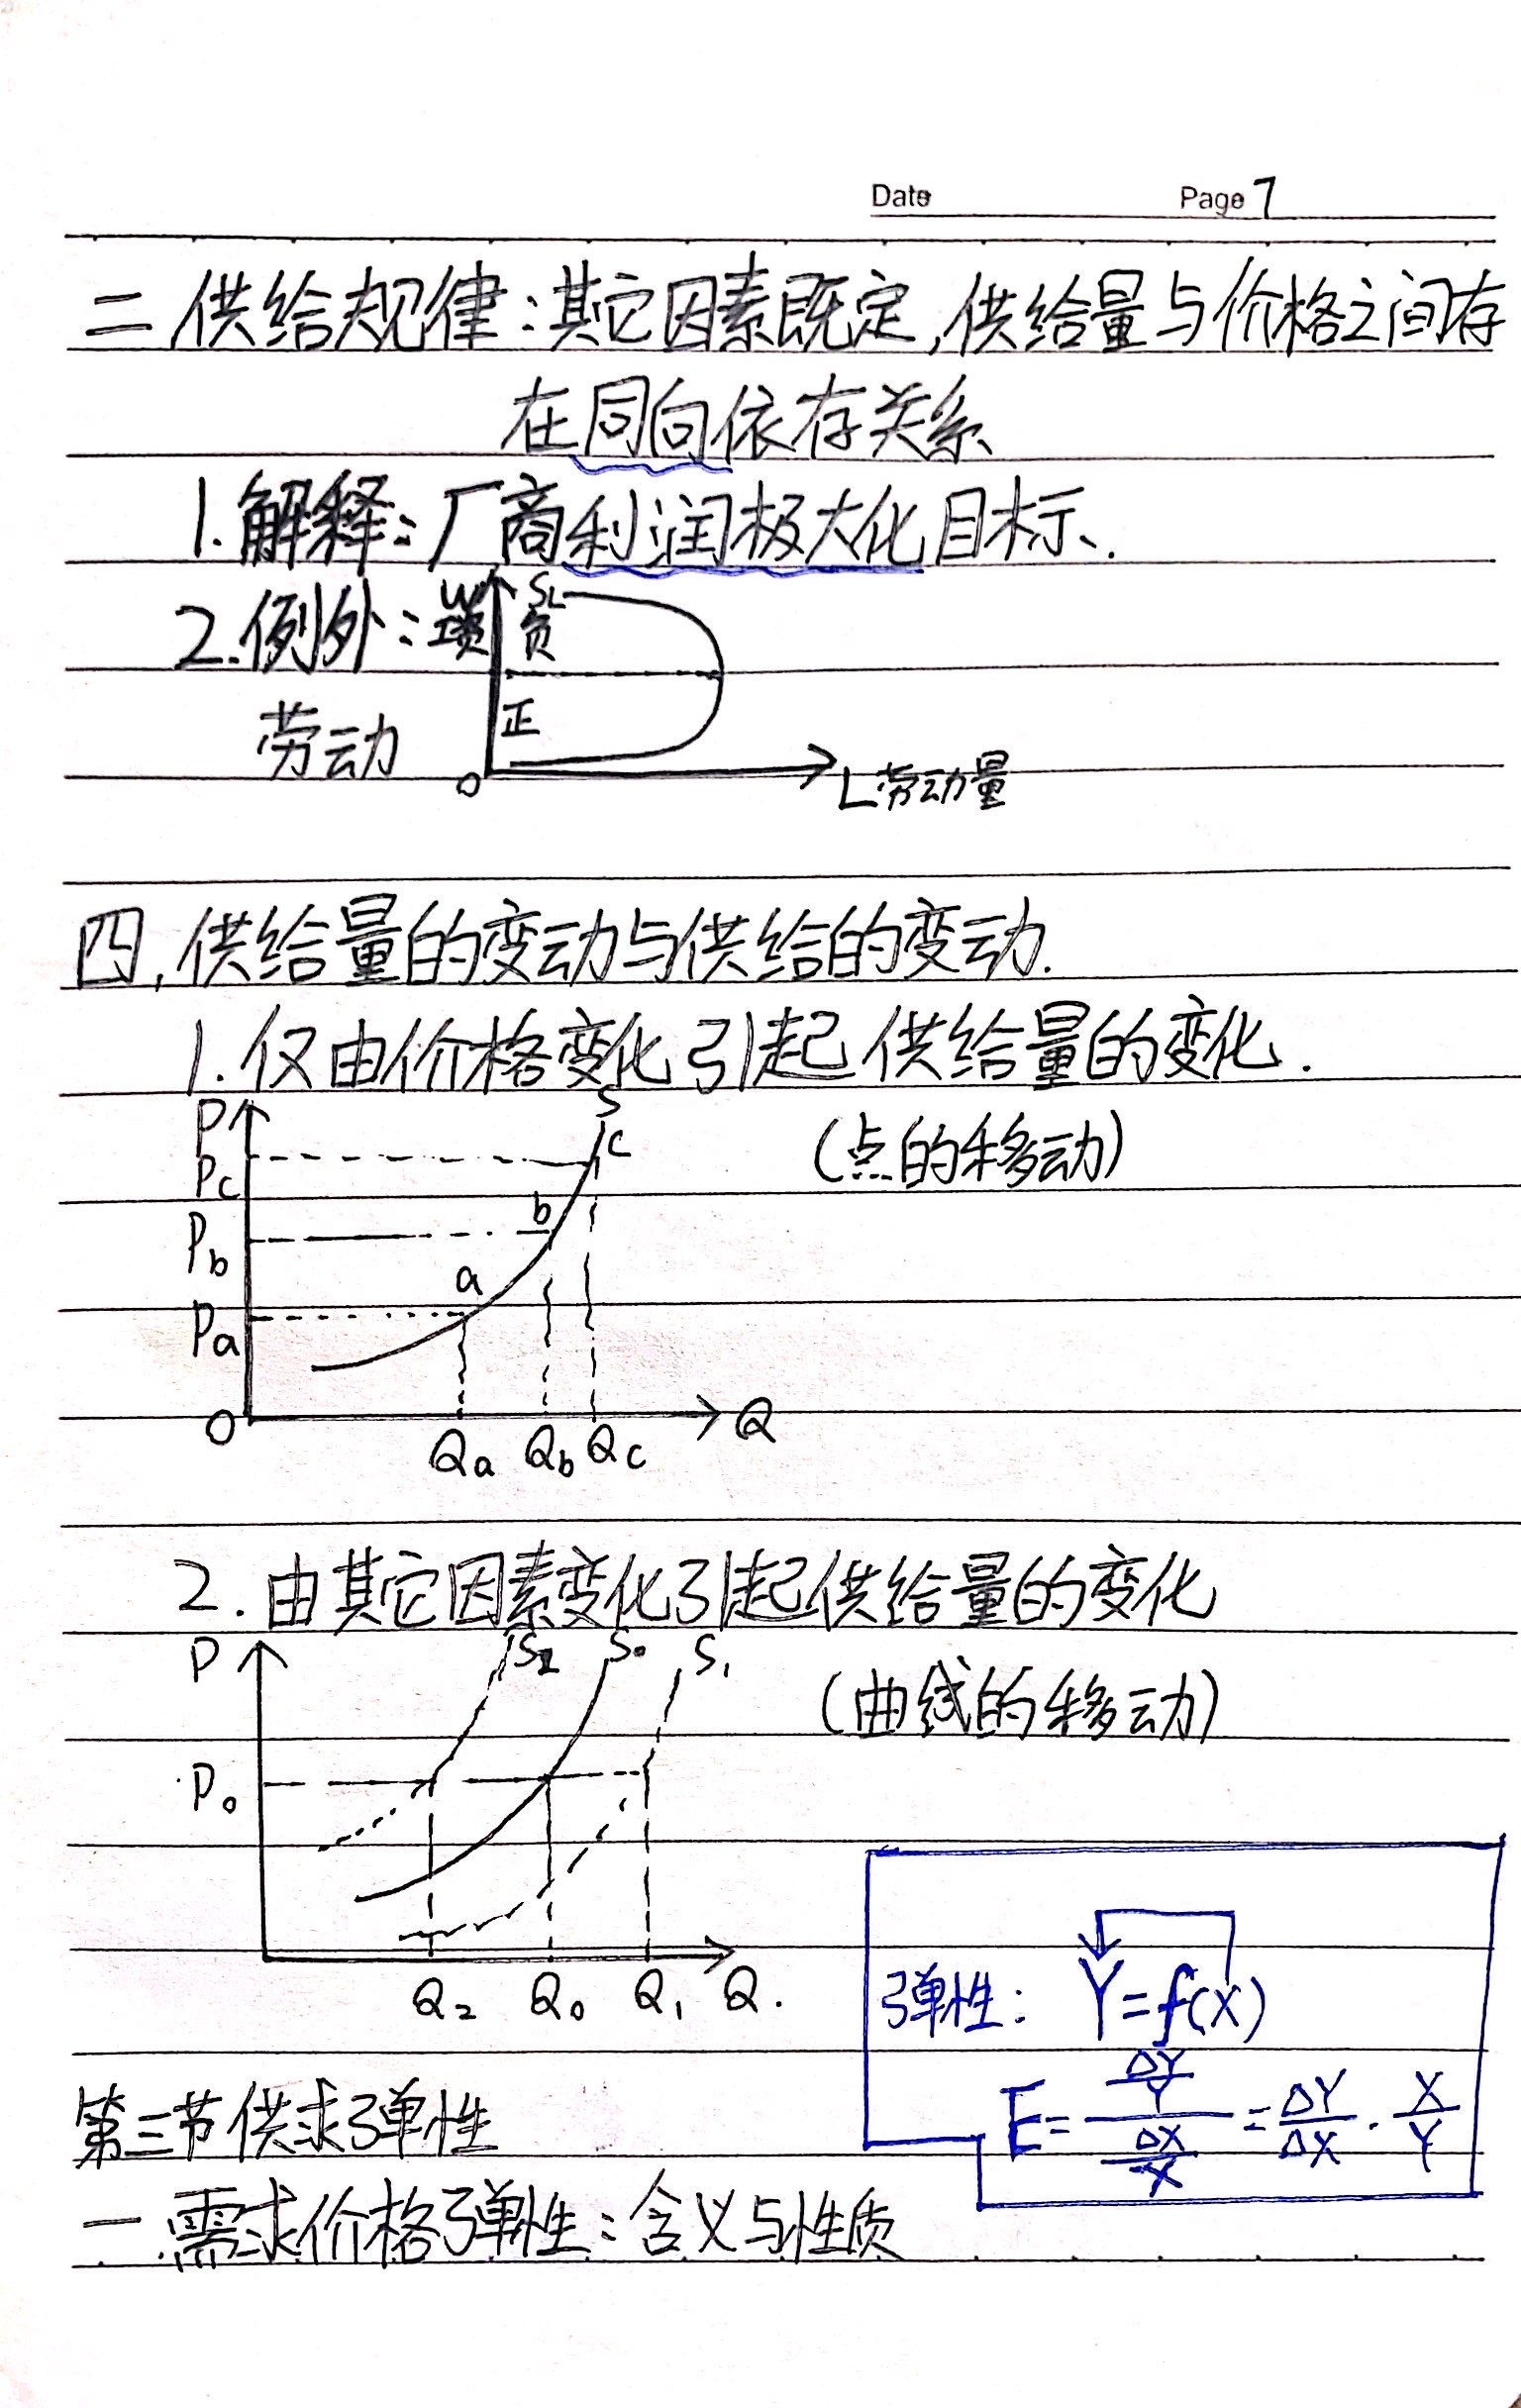 Date Page 7
二.供给规律:其它因素既定,供给量与价格之间存
在同向依存关系
1.解释:厂商利润极大化目标.
2.例外:
劳动
W
工资
SL
负
正
O
L劳动量
四.供给量的变动与供给的变动.
1.仅由价格变化引起供给量的变化.
(点的移动)
P S
Pc c
Pb b
Pa a
O Q
Qa Qb Qc
2.由其它因素变化引起供给量的变化
(曲线的移动)
P S2 S0 S1
P0
Q2 Q0 Q1 Q.
弹性: Y=f(X)
E=(ΔY/Y)/(ΔX/X)=ΔY/ΔX·X/Y
第三节供求弹性
一.需求价格弹性:含义与性质